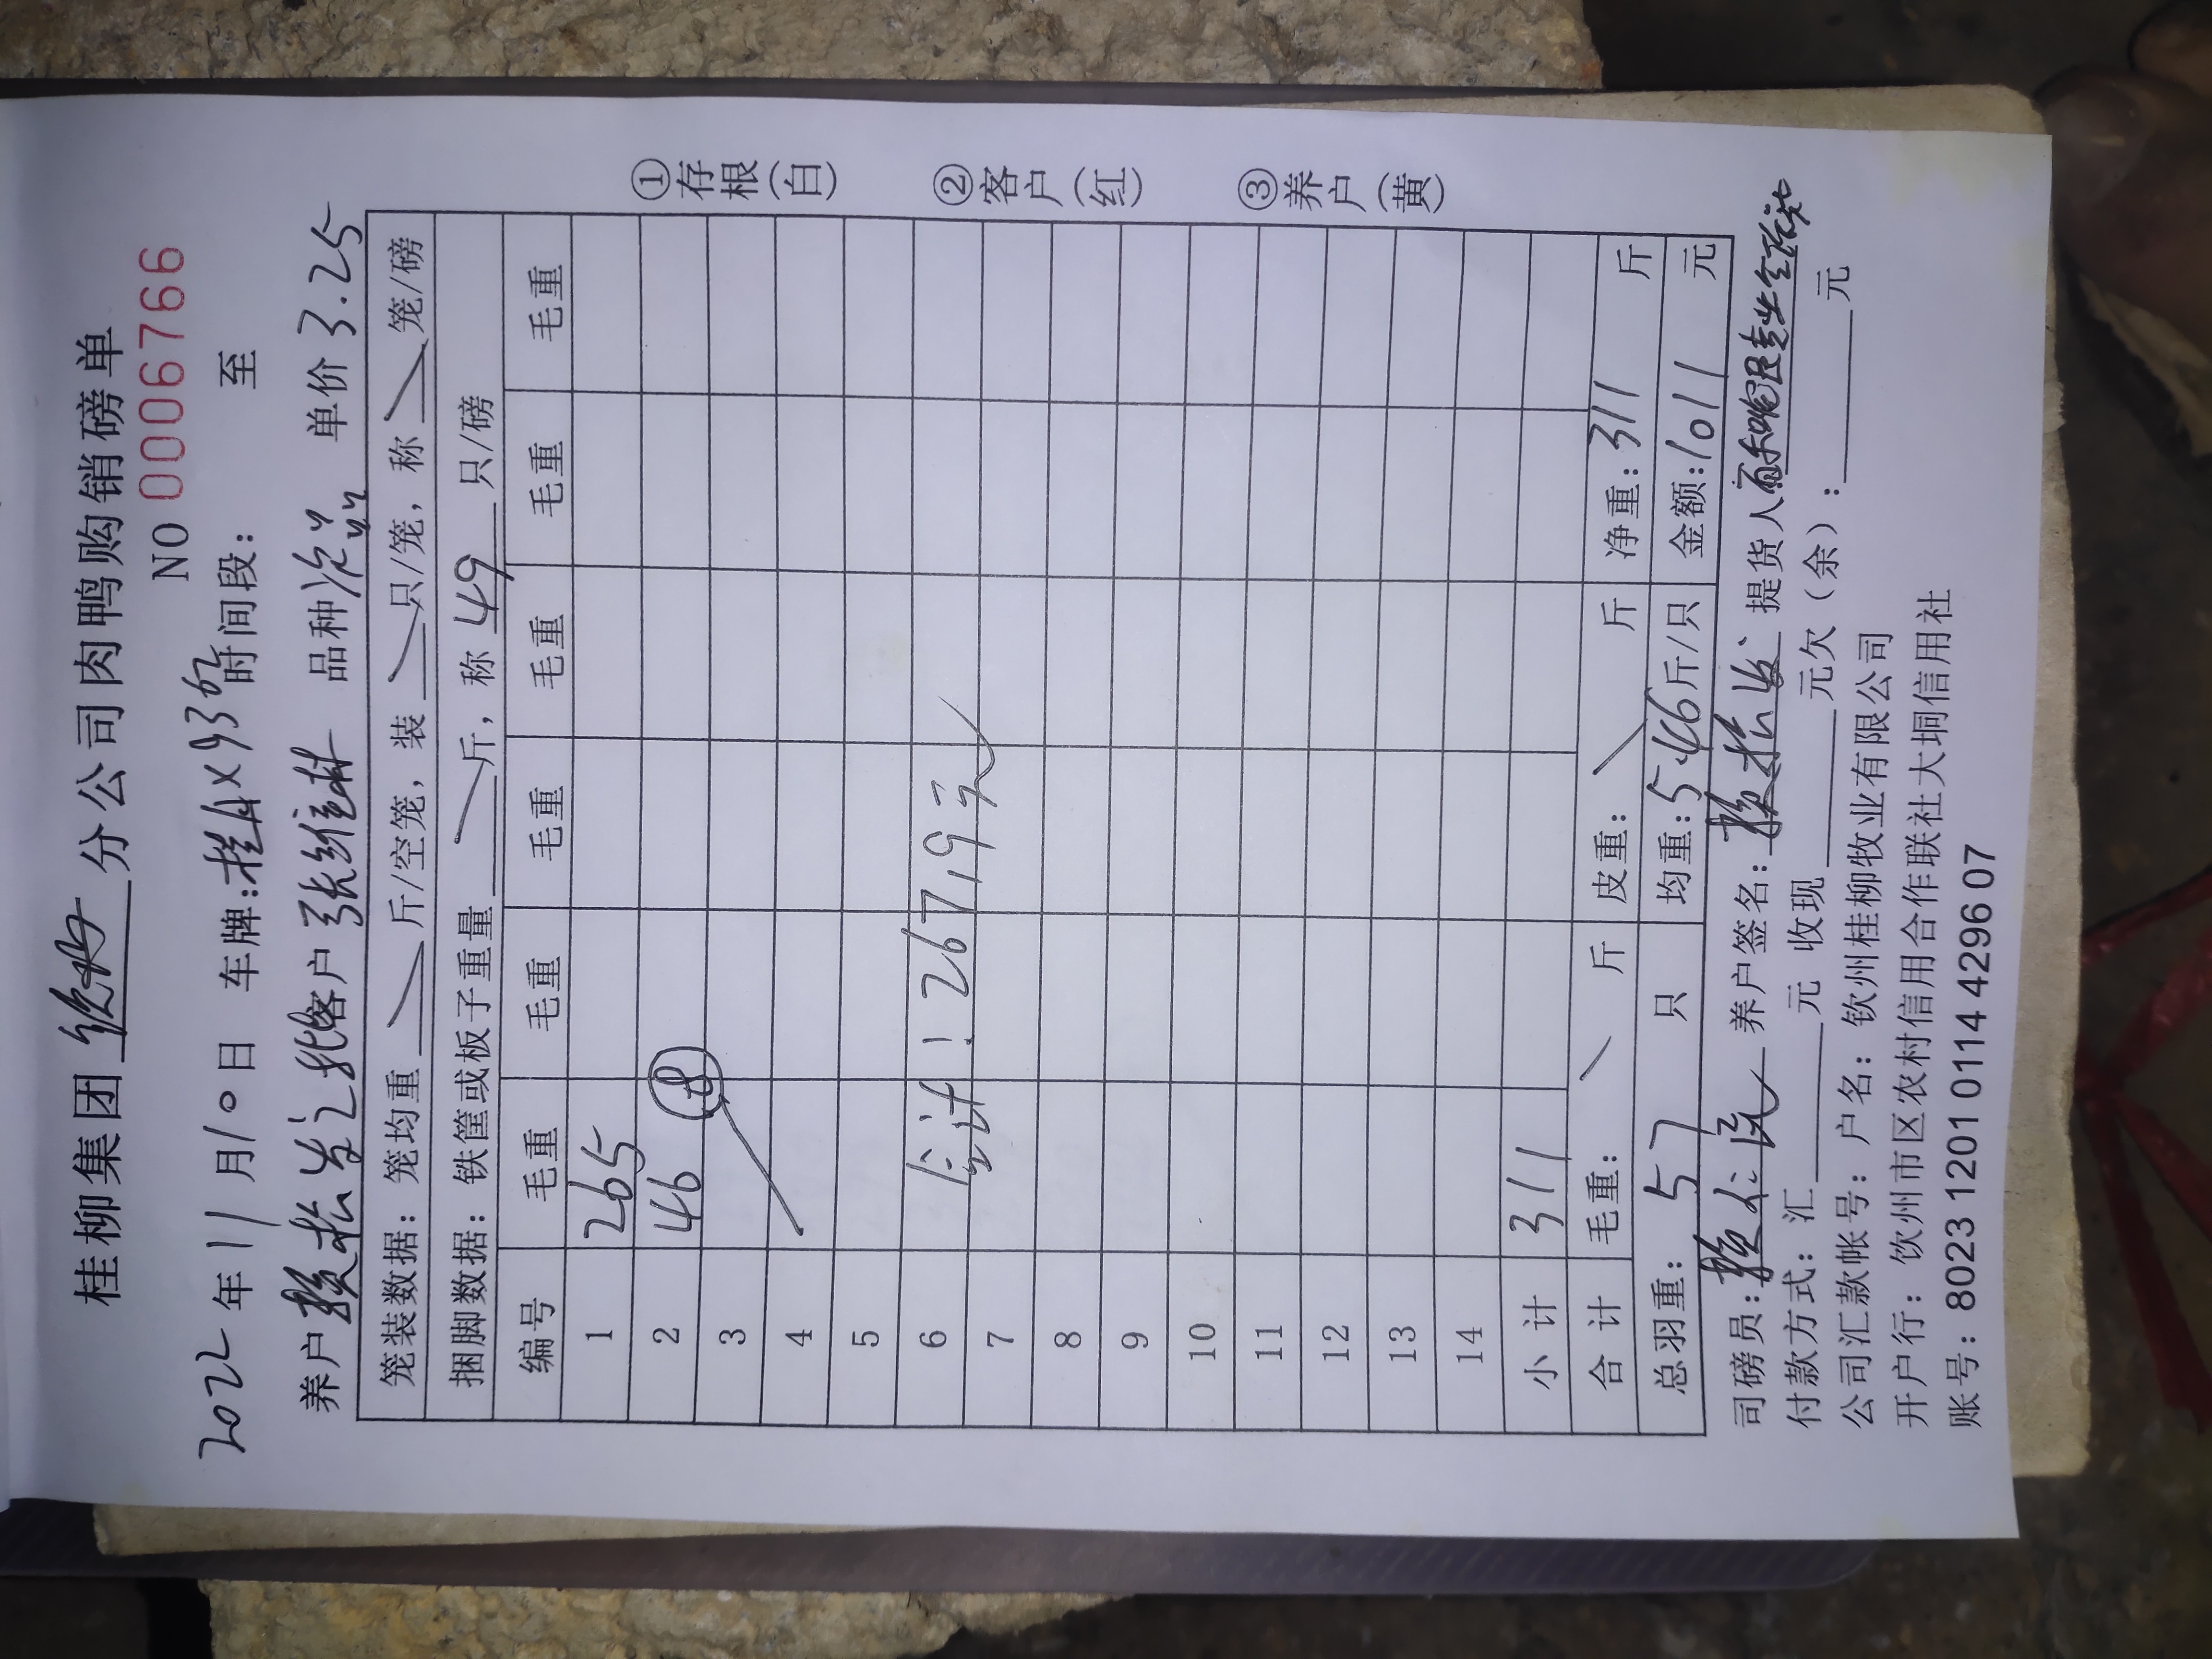 桂柳集团 分公司肉鸭购销磅单
NO 0006766
2022年11月10日 车牌:桂AX93 时间段: 至
养户 赖松发 客户 张维林 品种 单价 3.25
笼装数据:笼均重 斤/空笼,装 只/笼,称 笼/磅
捆脚数据:铁筐或板子重量 斤,称 49 只/磅
编号 毛重 毛重 毛重 毛重 毛重 毛重
1 265
2 46 ⑧
3
4
5
6 合计:26719元
7
8
9
10
11
12
13
14
小计 311
合计 毛重: 斤 皮重: 斤 净重:311 斤
总羽重:57 只 均重:5.46斤/只 金额:1011 元
①存根(白)
②客户(红)
③养户(黄)
司磅员: 养户签名:赖松发 提货人
付款方式:汇 元 收现 元欠(余): 元
公司汇款帐号:户名:钦州桂柳牧业有限公司
开户行:钦州市区农村信用合作联社大垌信用社
账号:8023 1201 0114 4296 07